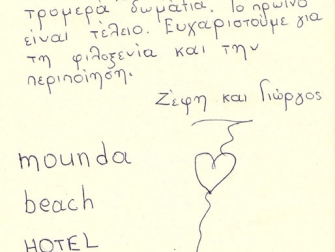 τρομερά δωμάτια. Το πρωινό
είναι τέλειο. Ευχαριστούμε για
τη φιλοξενία και την
περιποίηση.
Ζέφη και Γιώργος
mounda
beach
HOTEL